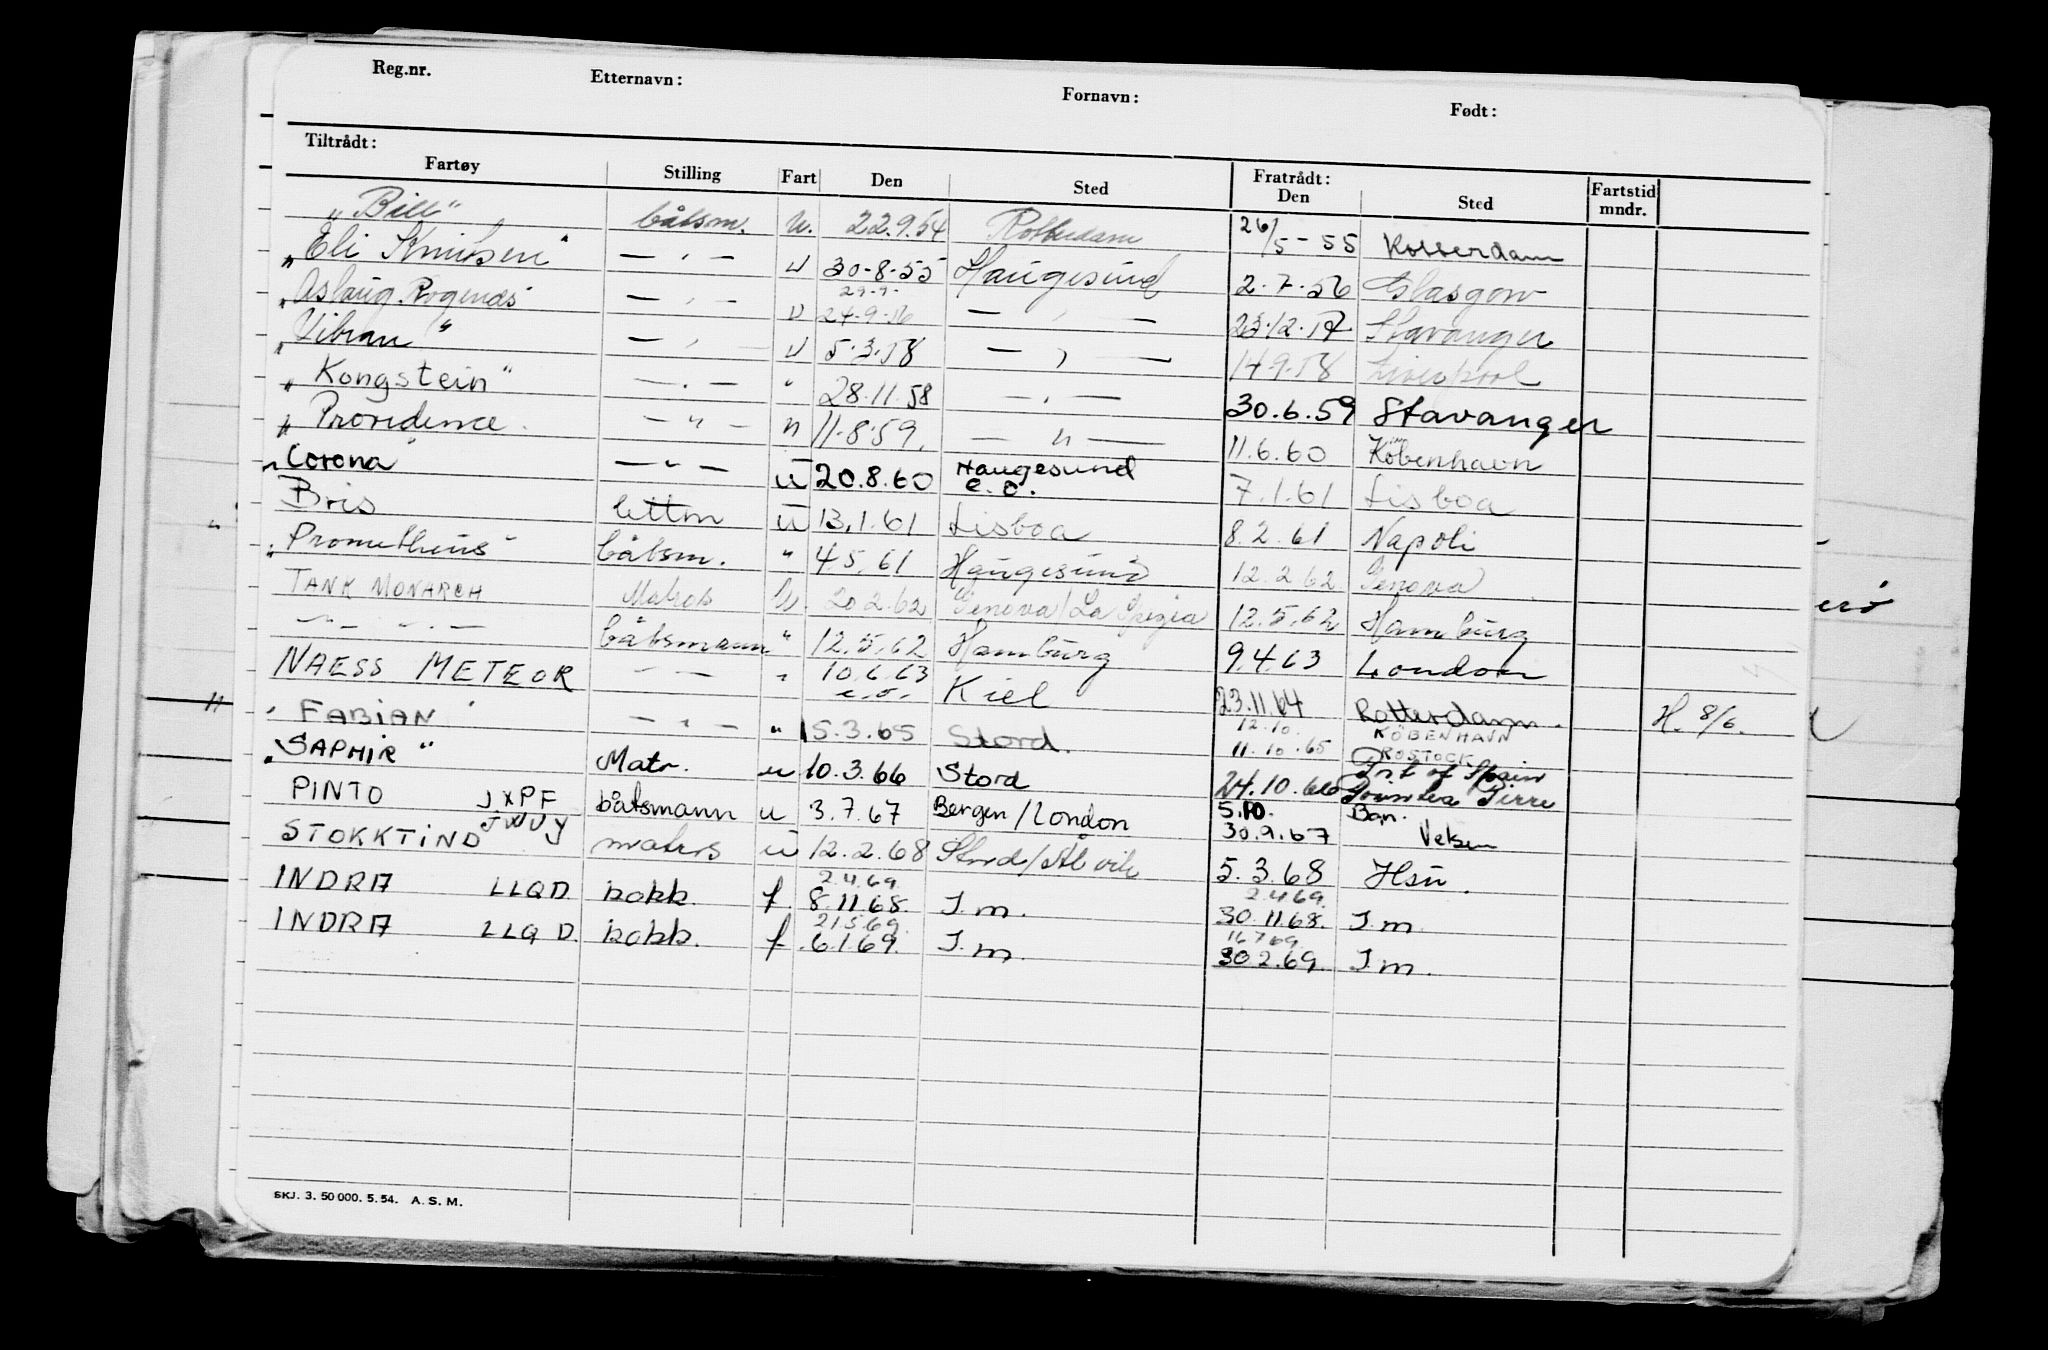 Reg.nr. Etternavn: Fornavn: Født:
Tiltrådt: Fratrådt:
Fartøy Stilling Fart Den Sted Den Sted Fartstid mndr.
"Bill" båtsm. u. 22.9.54 Rotterdam 26/5-55 Rotterdam
"Eli Knudsen" — " — u 30-8-55 Haugesund 2.7.56 Glasgow
29-9-
"Aslaug Rogenæs — " — u 24-9-56 — " — 23.12.57 Stavanger
"Vibran" — " — u 5.3.58 — " — 14.9.58 Liverpool
"Kongstein" — " — " 28.11.58 — " — 30.6.59 Stavanger
"Providence — " — " 11.8.59. — " — 11.6.60 København
"Corona — " — u 20.8.60 Haugesund e.o. 7.1.61 Lisboa
Bris lettm u 13.1.61 Lisboa 8.2.61 Napoli
"Prometheus" båtsm. " 4.5.61 Haugesund 12.2.62 Genova
TANK MONARCH Matros u. 20.2.62 Genova/La Spezia 12.5.62 Hamburg
— " — " — båtsmann " 12.5.62 Hamburg 9.4.63 London
NAESS METEOR — — " 10.6.63 e.o. Kiel 23.11.64 Rotterdam. H. 8/6.
12.10. KÖBENHAVN
"FABIAN" — " — " 15.3.65 Stord. 11.10.65 ROSTOCK
"SAPHIR" Matr. u 10.3.66 Stord 24.10.66 Port of Spain Pointea Pierre
PINTO JXPF båtsmann u 3.7.67 Bergen/London 5.10. Bgn.
30.9.67 Velsen
STOKKTIND JWUY matros u 12.2.68 Stord/Ålvik 5.3.68 Hsu.
2.4.69 2.4.69.
INDRA LLQD kokk f. 8.11.68. I.m. 30.11.68. I.m.
21.5.69. 16.7.69.
INDRA LLQD. kokk. f. 6.1.69. I.m. 30.2.69. I.m.
SKJ. 3. 50 000. 5. 54. A. S. M.